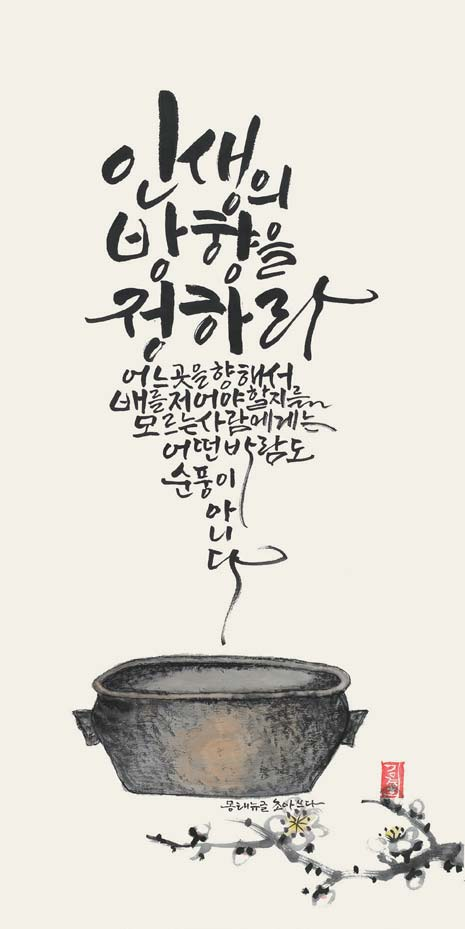 인생의
방향을
정하라
어느곳을향해서
배를저어야할지를
모르는사람에게는
어떤바람도
순풍이
아
니
다
몽테뉴글 초아쓰다